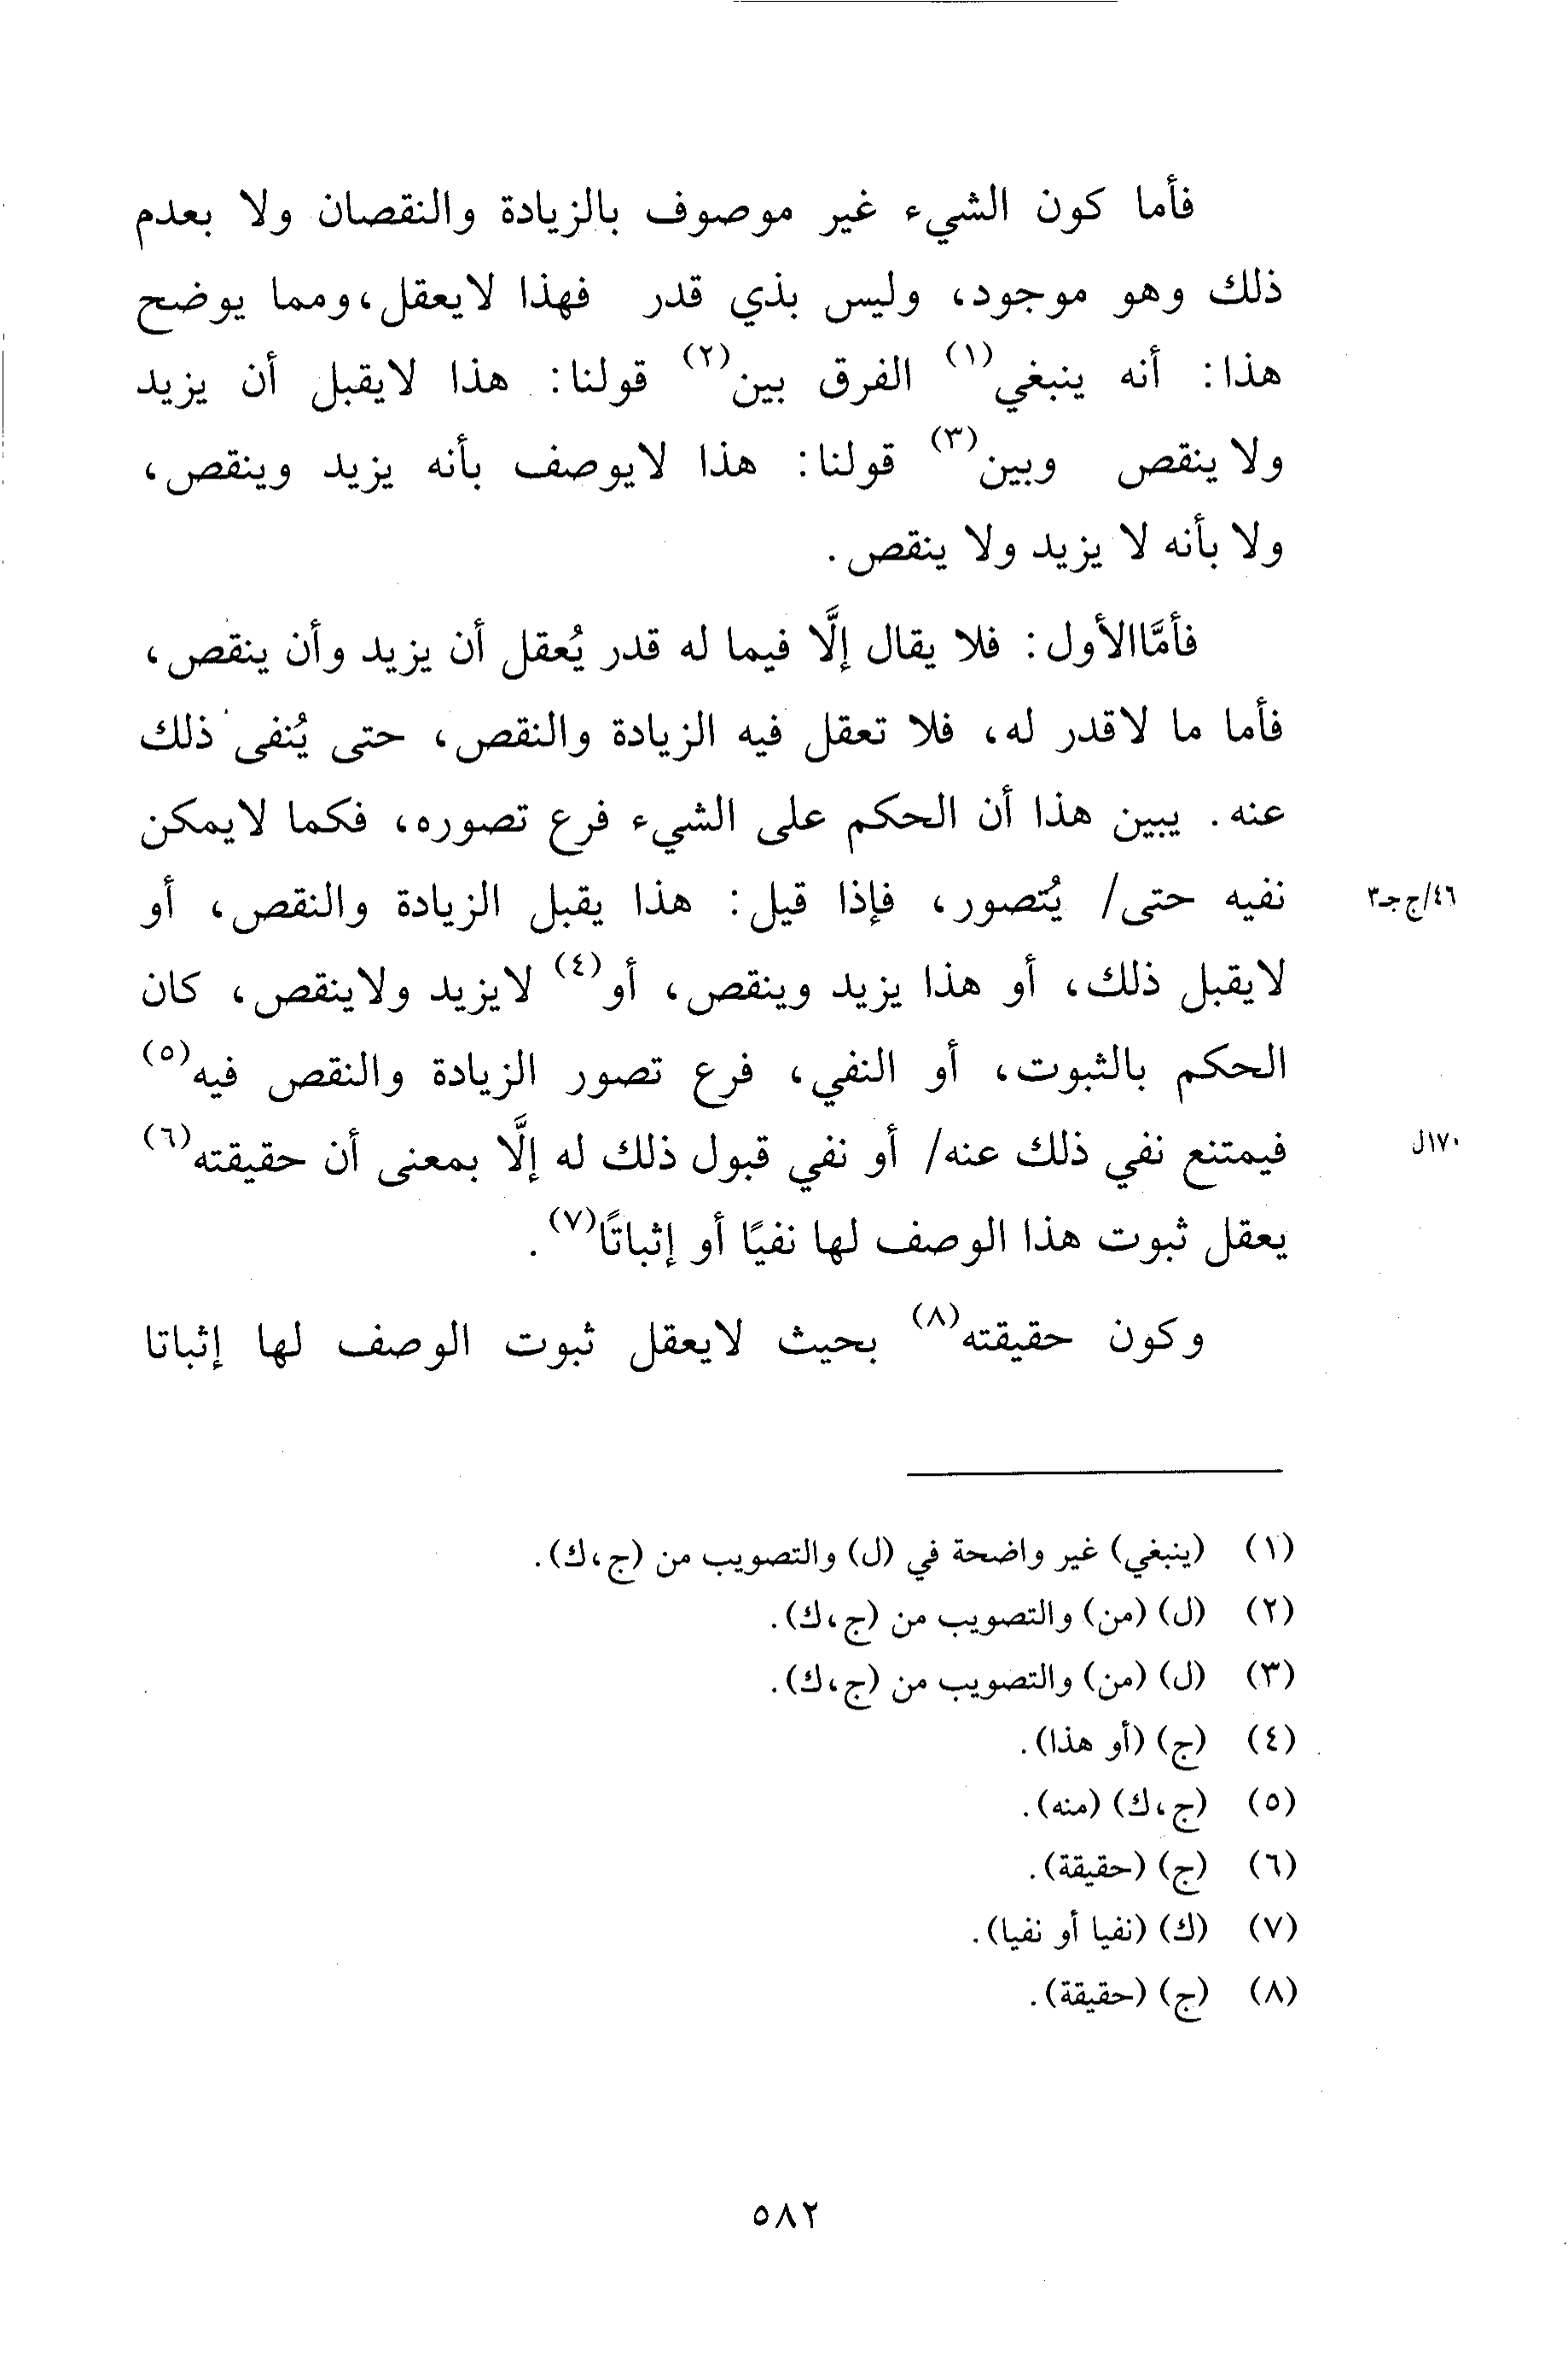 فأما كون الشيء غير موصوف بالزيادة والنقصان ولا بعدم
ذلك وهو موجود، وليس بذي قدر فهذا لايعقل،ومما يوضح
هذا: أنه ينبغي(١) الفرق بين(٢) قولنا: هذا لايقبل أن يزيد
ولا ينقص وبين(٣) قولنا: هذا لايوصف بأنه يزيد وينقص،
ولا بأنه لا يزيد ولا ينقص.
فأمَّاالأول: فلا يقال إلَّا فيما له قدر يُعقل أن يزيد وأن ينقص،
فأما ما لاقدر له، فلا تعقل فيه الزيادة والنقص، حتى يُنفى ذلك
عنه. يبين هذا أن الحكم على الشيء فرع تصوره، فكما لايمكن
نفيه حتى/ يُتصور، فإذا قيل: هذا يقبل الزيادة والنقص، أو
٤٦/ج جـ٣
لايقبل ذلك، أو هذا يزيد وينقص، أو(٤) لايزيد ولاينقص، كان
الحكم بالثبوت، أو النفي، فرع تصور الزيادة والنقص فيه(٥)
فيمتنع نفي ذلك عنه/ أو نفي قبول ذلك له إلَّا بمعنى أن حقيقته(٦)
١٧٠ل
يعقل ثبوت هذا الوصف لها نفيًا أو إثباتًا(٧).
وكون حقيقته(٨) بحيث لايعقل ثبوت الوصف لها إثباتا
(١) (ينبغي) غير واضحة في (ل) والتصويب من (ج،ك).
(٢) (ل) (من) والتصويب من (ج،ك).
(٣) (ل) (من) والتصويب من (ج،ك).
(٤) (ج) (أو هذا).
(٥) (ج،ك) (منه).
(٦) (ج) (حقيقة).
(٧) (ك) (نفيا أو نفيا).
(٨) (ج) (حقيقة).
٥٨٢